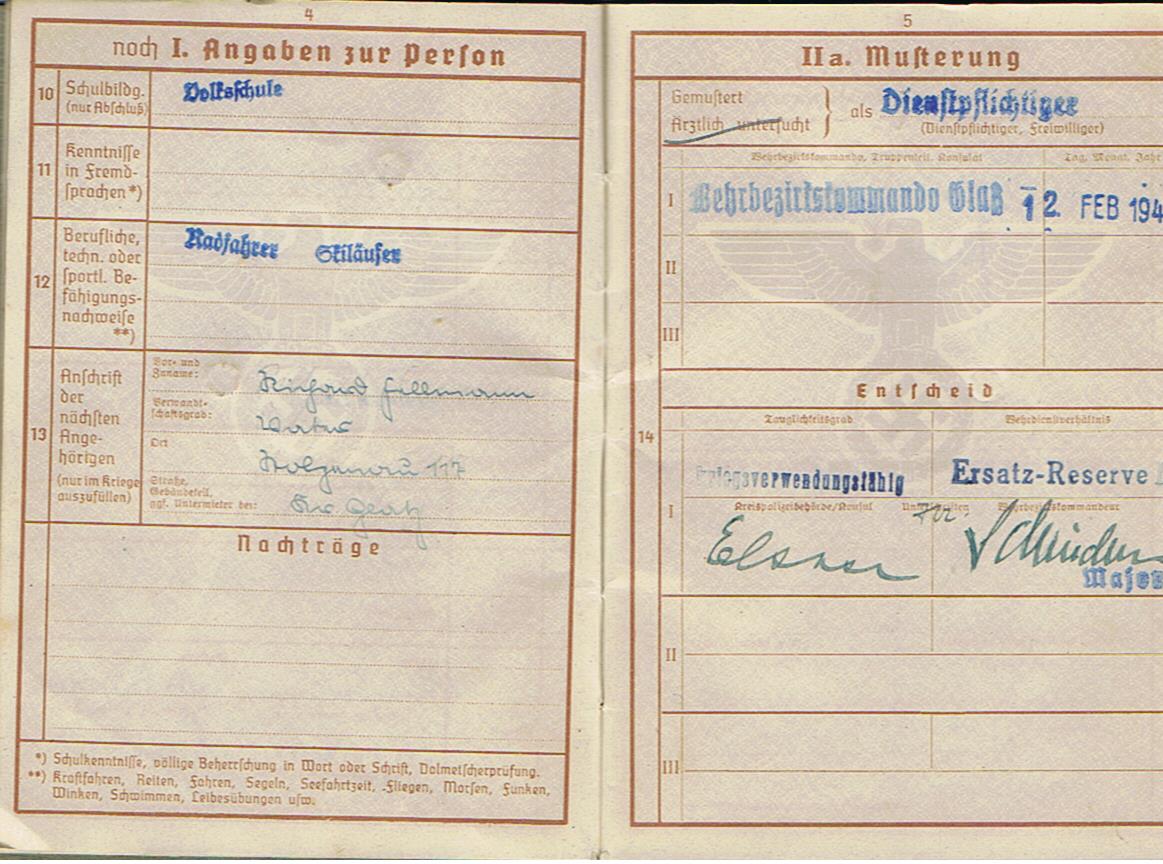 4
noch I. Angaben zur Person
10
Schulbildg.
(nur Abschluß)
Volksschule
11
Kenntnisse
in Fremd-
sprachen *)
12
Berufliche,
techn. oder
sportl. Be-
fähigungs-
nachweise
**)
Radfahrer Skiläufer
13
Anschrift
der
nächsten
Ange-
hörigen
(nur im Kriege
auszufüllen)
Vor- und
Zuname:
Richard Hellmann
Verwandt-
schaftsgrad:
Vater
Ort
117
Straße,
Gebäudeteil,
ggf. Untermieter bei:
Glatz
Nachträge
*) Schulkenntnisse, völlige Beherrschung in Wort oder Schrift, Dolmetscherprüfung.
**) Kraftfahren, Reiten, Fahren, Segeln, Seefahrtzeit, Fliegen, Morsen, Funken,
Winken, Schwimmen, Leibesübungen usw.
5
IIa. Musterung
Gemustert
Ärztlich untersucht
als Dienstpflichtiger
(Dienstpflichtiger, Freiwilliger)
Wehrbezirkskommando, Truppenteil, Konsulat
Tag, Monat, Jahr
I
Wehrbezirkskommando Glatz 12. FEB 194
II
III
Entscheid
Tauglichkeitsgrad
Wehrdienstverhältnis
14
I
kriegsverwendungsfähig
Ersatz-Reserve
Kreispolizeibehörde/Konsul
Unterschriften
Wehrbezirkskommandeur
Elsner
Major
II
III